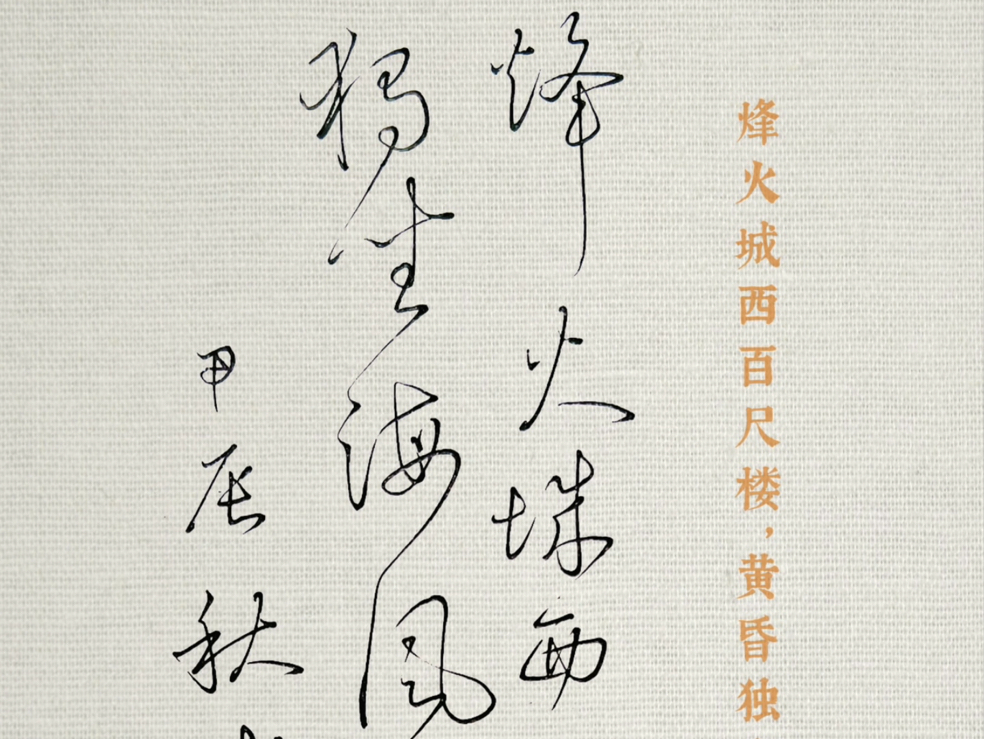 烽火城西百尺楼，黄昏独
烽火城西
獨坐海風
甲辰秋